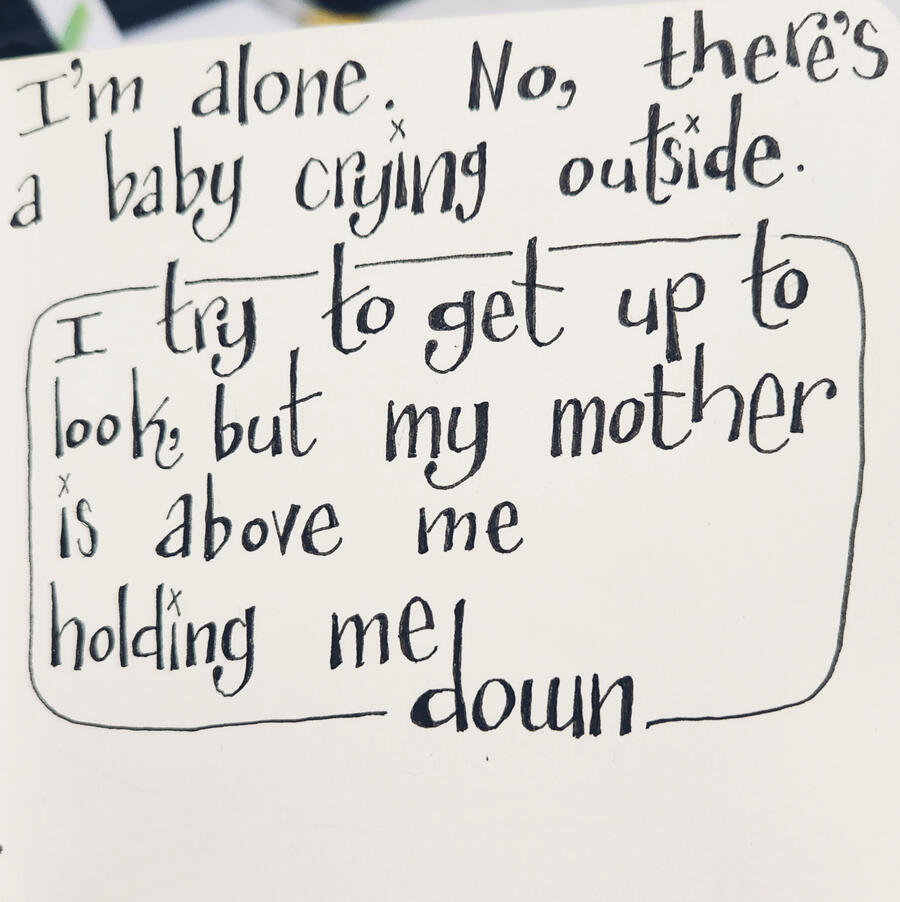 I'm alone. No, there's
a baby crying outside.
I try to get up to
look, but my mother
is above me
holding me
down